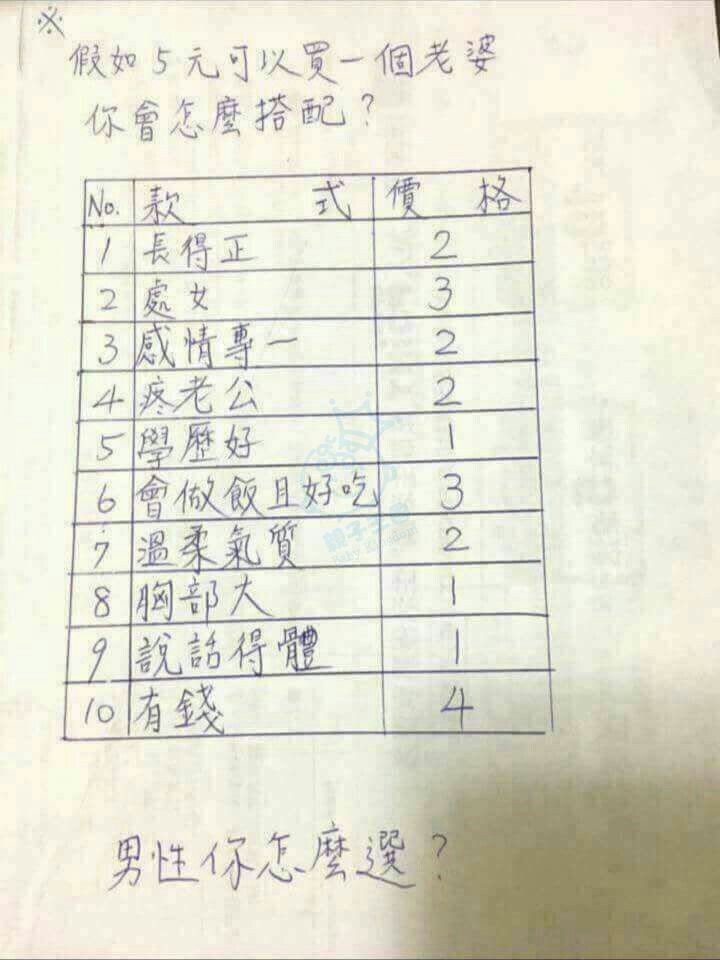 ※
假如5元可以買一個老婆
你會怎麼搭配?
No. 款式 價格
1 長得正 2
2 處女 3
3 感情專一 2
4 疼老公 2
5 學歷好 1
6 會做飯且好吃 3
7 溫柔氣質 2
8 胸部大 1
9 說話得體 1
10 有錢 4
親子王國
Baby Kingdom
男性你怎麼選?